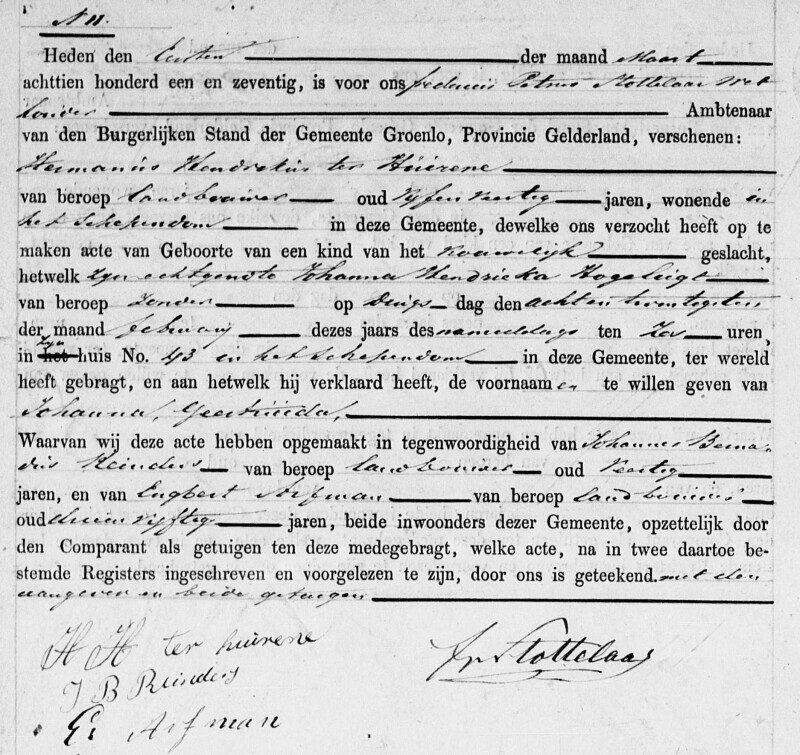 N 11.
Heden den Eersten der maand Maart
achttien honderd een en zeventig, is voor ons fredericus Petrus Stottelaar Wet
houder Ambtenaar
van den Burgerlijken Stand der Gemeente Groenlo, Provincie Gelderland, verschenen:
Hermanus Hendrikus ter Huurene
van beroep Landbouwer oud Vyfenveertig jaren, wonende in
het Schependom in deze Gemeente, dewelke ons verzocht heeft op te
maken acte van Geboorte van een kind van het Vrouwelijk geslacht,
hetwelk zyn echtgenote Johanna Hendrieka
van beroep Zonder op Dings dag den achtentwintigsten
der maand februarij dezes jaars des nameddags ten Zes uren,
in zyn huis No. 43 in het Schependom in deze Gemeente, ter wereld
heeft gebragt, en aan hetwelk hij verklaard heeft, de voornaamen te willen geven van
Johanna, Geertruida,
Waarvan wij deze acte hebben opgemaakt in tegenwoordigheid van Johannes Berna-
dus Reinders van beroep Landbouwer oud Veertig
jaren, en van Engbert Arfman van beroep Landbouwer
oud drieenvyftig jaren, beide inwoonders dezer Gemeente, opzettelijk door
den Comparant als getuigen ten deze medegebragt, welke acte, na in twee daartoe be-
stemde Registers ingeschreven en voorgelezen te zijn, door ons is geteekend. met den
aangever en beide getuigen
H H ter huurene
J B Reinders
E Arfman
fp Stottelaar